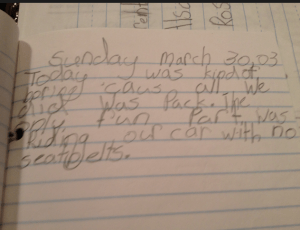 Sunday March 30,03
Today I was kindof
was all we
did was Pack. The
only fun Part was
riding our car with no
seatbelts.
Ros